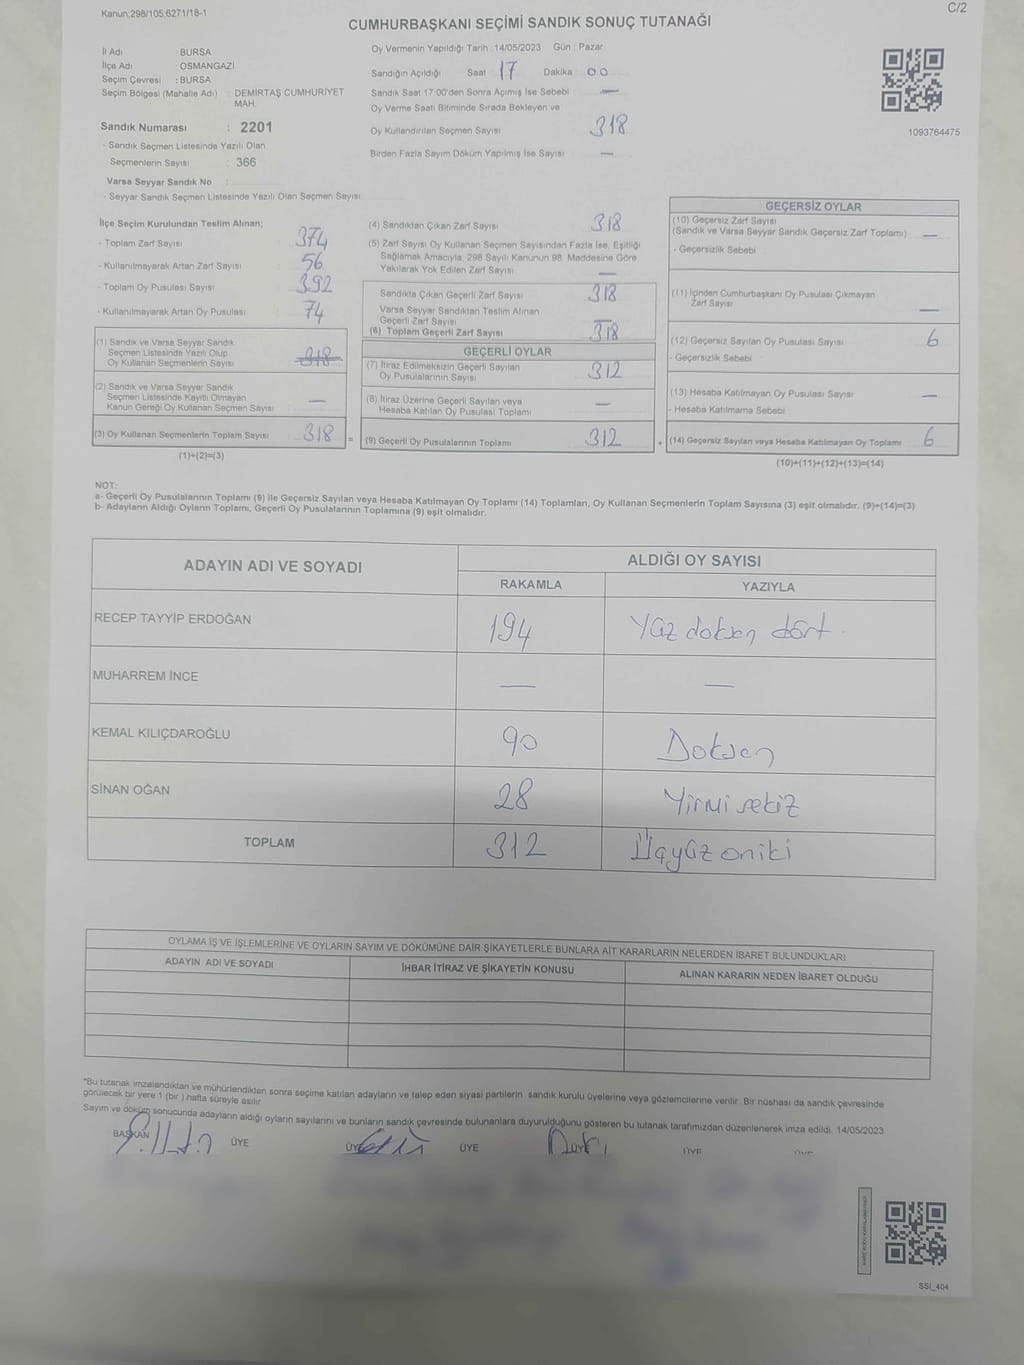 Kanun;298/105;6271/18-1
C/2
CUMHURBAŞKANI SEÇİMİ SANDIK SONUÇ TUTANAĞI
İl Adı : BURSA
İlçe Adı : OSMANGAZİ
Seçim Çevresi : BURSA
Seçim Bölgesi (Mahalle Adı) : DEMİRTAŞ CUMHURİYET
MAH.
Sandık Numarası : 2201
- Sandık Seçmen Listesinde Yazılı Olan
Seçmenlerin Sayısı : 366
Varsa Seyyar Sandık No :
- Seyyar Sandık Seçmen Listesinde Yazılı Olan Seçmen Sayısı:
Oy Vermenin Yapıldığı Tarih : 14/05/2023 Gün : Pazar
Sandığın Açıldığı Saat : 17 Dakika : 00
Sandık Saat 17:00'den Sonra Açımış İse Sebebi : —
Oy Verme Saati Bitiminde Sırada Bekleyen ve
Oy Kullandırılan Seçmen Sayısı : 318
Birden Fazla Sayım Döküm Yapılmış İse Sayısı : —
1093764475
İlçe Seçim Kurulundan Teslim Alınan;
- Toplam Zarf Sayısı : 374
- Kullanılmayarak Artan Zarf Sayısı : 56
- Toplam Oy Pusulası Sayısı : 392
- Kullanılmayarak Artan Oy Pusulası : 74
(1) Sandık ve Varsa Seyyar Sandık
Seçmen Listesinde Yazılı Olup
Oy Kullanan Seçmenlerin Sayısı : 318
(2) Sandık ve Varsa Seyyar Sandık
Seçmen Listesinde Kayıtlı Olmayan
Kanun Gereği Oy Kullanan Seçmen Sayısı : —
(3) Oy Kullanan Seçmenlerin Toplam Sayısı : 318 =
(1)+(2)=(3)
(4) Sandıktan Çıkan Zarf Sayısı : 318
(5) Zarf Sayısı Oy Kullanan Seçmen Sayısından Fazla İse, Eşitliği
Sağlamak Amacıyla, 298 Sayılı Kanunun 98. Maddesine Göre
Yakılarak Yok Edilen Zarf Sayısı : —
Sandıkta Çıkan Geçerli Zarf Sayısı : 318
Varsa Seyyar Sandıktan Teslim Alınan
Geçerli Zarf Sayısı : —
(6) Toplam Geçerli Zarf Sayısı : 318
GEÇERLİ OYLAR
(7) İtiraz Edilmeksizin Geçerli Sayılan
Oy Pusulalarının Sayısı : 312
(8) İtiraz Üzerine Geçerli Sayılan veya
Hesaba Katılan Oy Pusulası Toplamı : —
(9) Geçerli Oy Pusulalarının Toplamı : 312 +
GEÇERSİZ OYLAR
(10) Geçersiz Zarf Sayısı
(Sandık ve Varsa Seyyar Sandık Geçersiz Zarf Toplamı) : —
- Geçersizlik Sebebi :
(11) İçinden Cumhurbaşkanı Oy Pusulası Çıkmayan
Zarf Sayısı : —
(12) Geçersiz Sayılan Oy Pusulası Sayısı : 6
- Geçersizlik Sebebi :
(13) Hesaba Katılmayan Oy Pusulası Sayısı : —
- Hesaba Katılmama Sebebi :
(14) Geçersiz Sayılan veya Hesaba Katılmayan Oy Toplamı : 6
(10)+(11)+(12)+(13)=(14)
NOT:
a- Geçerli Oy Pusulalarının Toplamı (9) ile Geçersiz Sayılan veya Hesaba Katılmayan Oy Toplamı (14) Toplamları, Oy Kullanan Seçmenlerin Toplam Sayısına (3) eşit olmalıdır. (9)+(14)=(3)
b- Adayların Aldığı Oyların Toplamı, Geçerli Oy Pusulalarının Toplamına (9) eşit olmalıdır.
ADAYIN ADI VE SOYADI ALDIĞI OY SAYISI
RAKAMLA YAZIYLA
RECEP TAYYİP ERDOĞAN 194 Yüz doksan dört
MUHARREM İNCE — —
KEMAL KILIÇDAROĞLU 90 Doksan
SİNAN OĞAN 28 Yirmi sekiz
TOPLAM 312 Üçyüz oniki
OYLAMA İŞ VE İŞLEMLERİNE VE OYLARIN SAYIM VE DÖKÜMÜNE DAİR ŞİKAYETLERLE BUNLARA AİT KARARLARIN NELERDEN İBARET BULUNDUKLARI
ADAYIN ADI VE SOYADI İHBAR İTİRAZ VE ŞİKAYETİN KONUSU ALINAN KARARIN NEDEN İBARET OLDUĞU
*Bu tutanak imzalandıktan ve mühürlendikten sonra seçime katılan adayların ve talep eden siyasi partilerin sandık kurulu üyelerine veya gözlemcilerine verilir. Bir nüshası da sandık çevresinde
görülecek bir yere 1 (bir) hafta süreyle asılır.
Sayım ve döküm sonucunda adayların aldığı oyların sayılarını ve bunların sandık çevresinde bulunanlara duyurulduğunu gösteren bu tutanak tarafımızdan düzenlenerek imza edildi. 14/05/2023
BAŞKAN ÜYE ÜYE ÜYE ÜYE ÜYE ÜYE
SSI_404